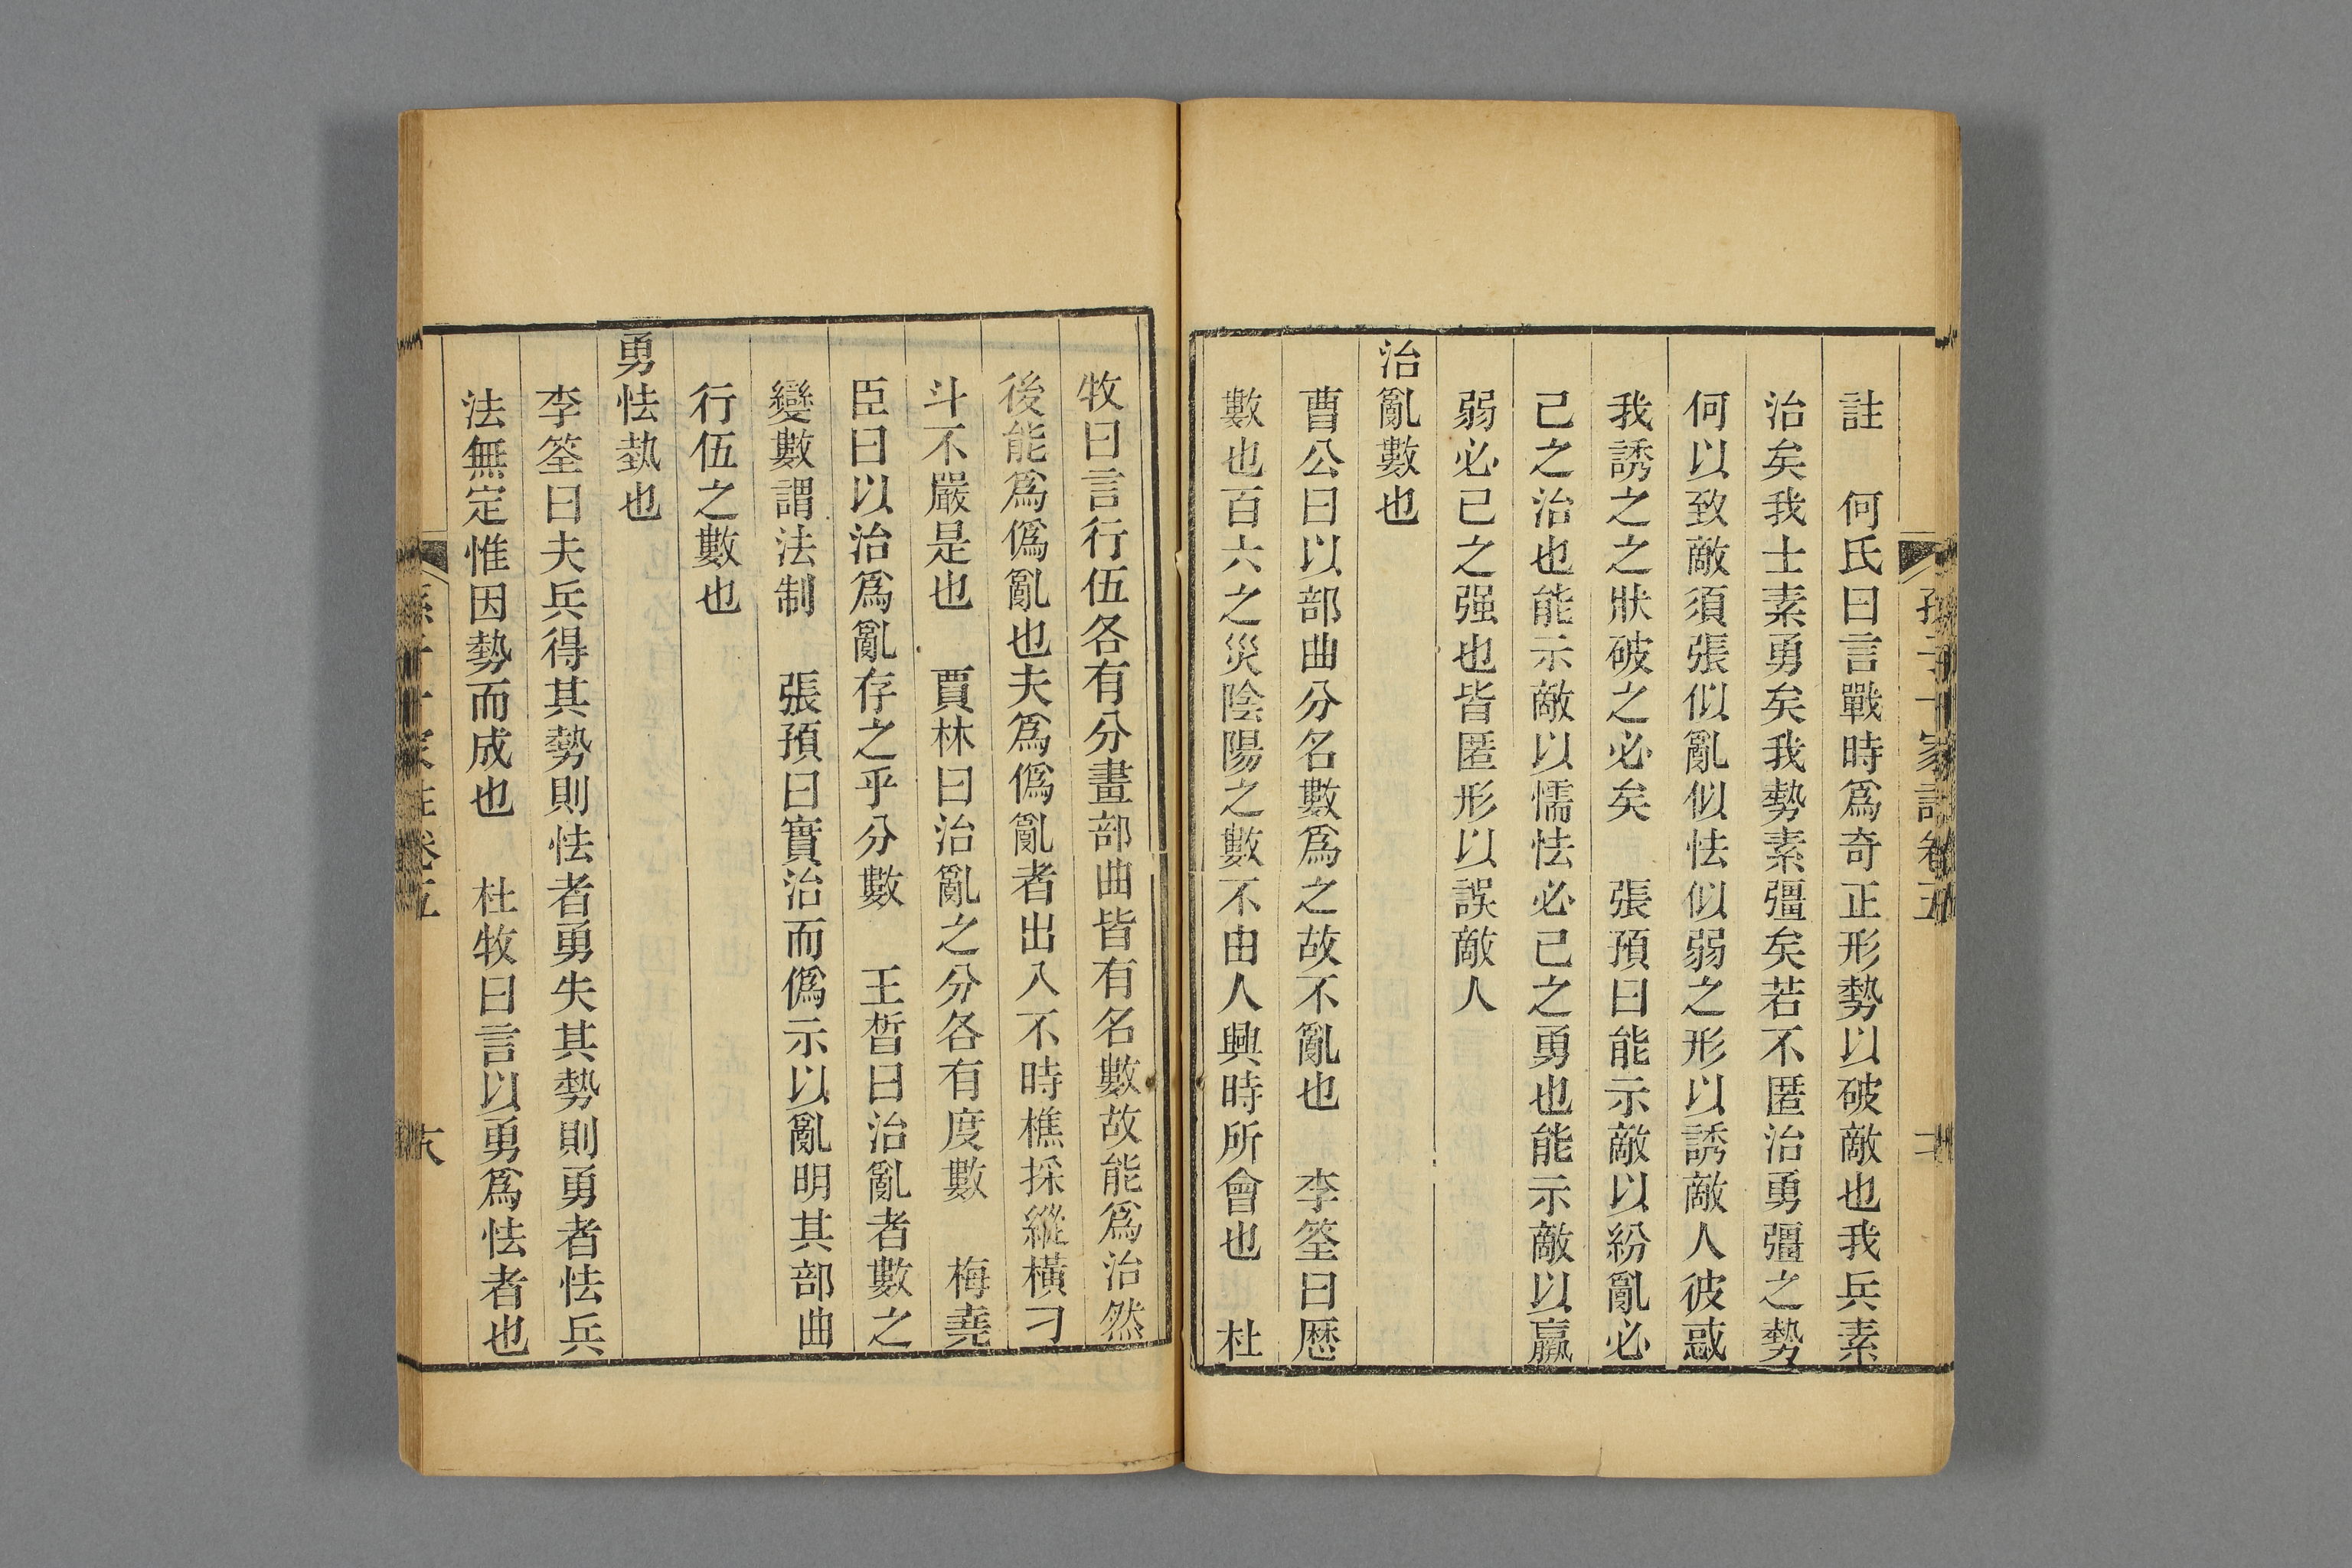 孫子十家註卷五
註　何氏曰言戰時爲奇正形勢以破敵也我兵素
治矣我士素勇矣我勢素彊矣若不匿治勇彊之勢
何以致敵須張似亂似怯似弱之形以誘敵人彼惑
我誘之之狀破之必矣　張預曰能示敵以紛亂必
己之治也能示敵以懦怯必己之勇也能示敵以羸
弱必己之强也皆匿形以誤敵人
治亂數也
曹公曰以部曲分名數爲之故不亂也　李筌曰歷
數也百六之災陰陽之數不由人興時所會也　杜
牧曰言行伍各有分畫部曲皆有名數故能爲治然
後能爲僞亂也夫爲僞亂者出入不時樵採縱橫刁
斗不嚴是也　賈林曰治亂之分各有度數　梅堯
臣曰以治爲亂存之乎分數　王晳曰治亂者數之
變數謂法制　張預曰實治而僞示以亂明其部曲
行伍之數也
勇怯埶也
李筌曰夫兵得其勢則怯者勇失其勢則勇者怯兵
法無定惟因勢而成也　杜牧曰言以勇爲怯者也
孫子十家註卷五